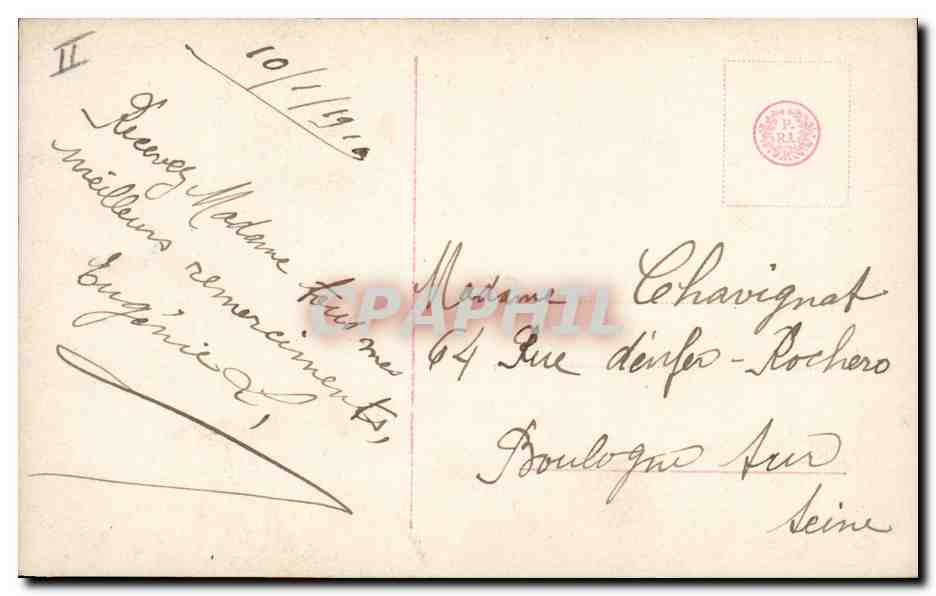 II
10/1/1910
Recevez Madame tous mes
meilleurs remerciments,
Eugénie L,
P.
R.I.
CPAPHIL
Madame Chavignat
64 Rue denfer-Rochero
Boulogne sur
seine